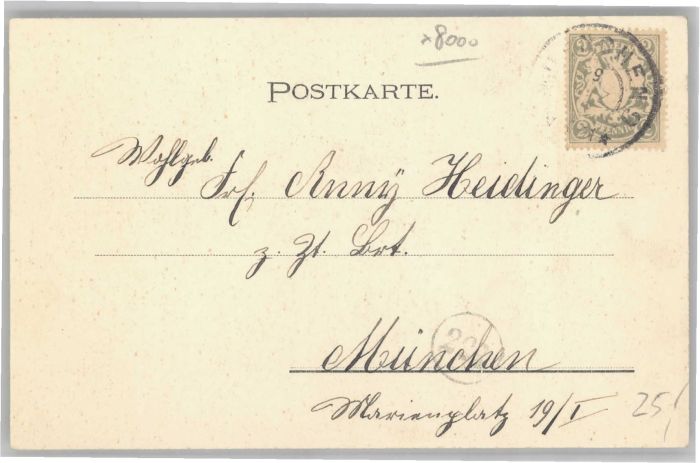 x 8000
POSTKARTE.
Wohlgeb.
Frl. Anny Heidinger
z. Zt.
München
Marienplatz 19/I
25,